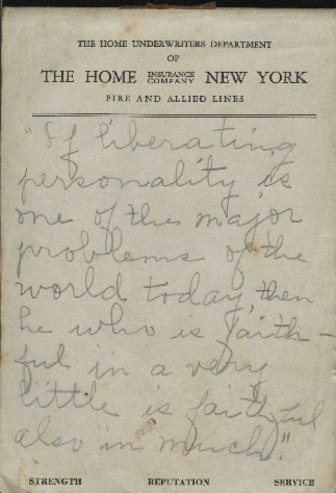 THE HOME UNDERWRITERS DEPARTMENT
OF
THE HOME INSURANCE COMPANY NEW YORK
FIRE AND ALLIED LINES
"If liberating
personality is
one of the major
problems of the
world today, then
he who is faith-
ful in a very
little is faithful
also in much."
STRENGTH REPUTATION SERVICE